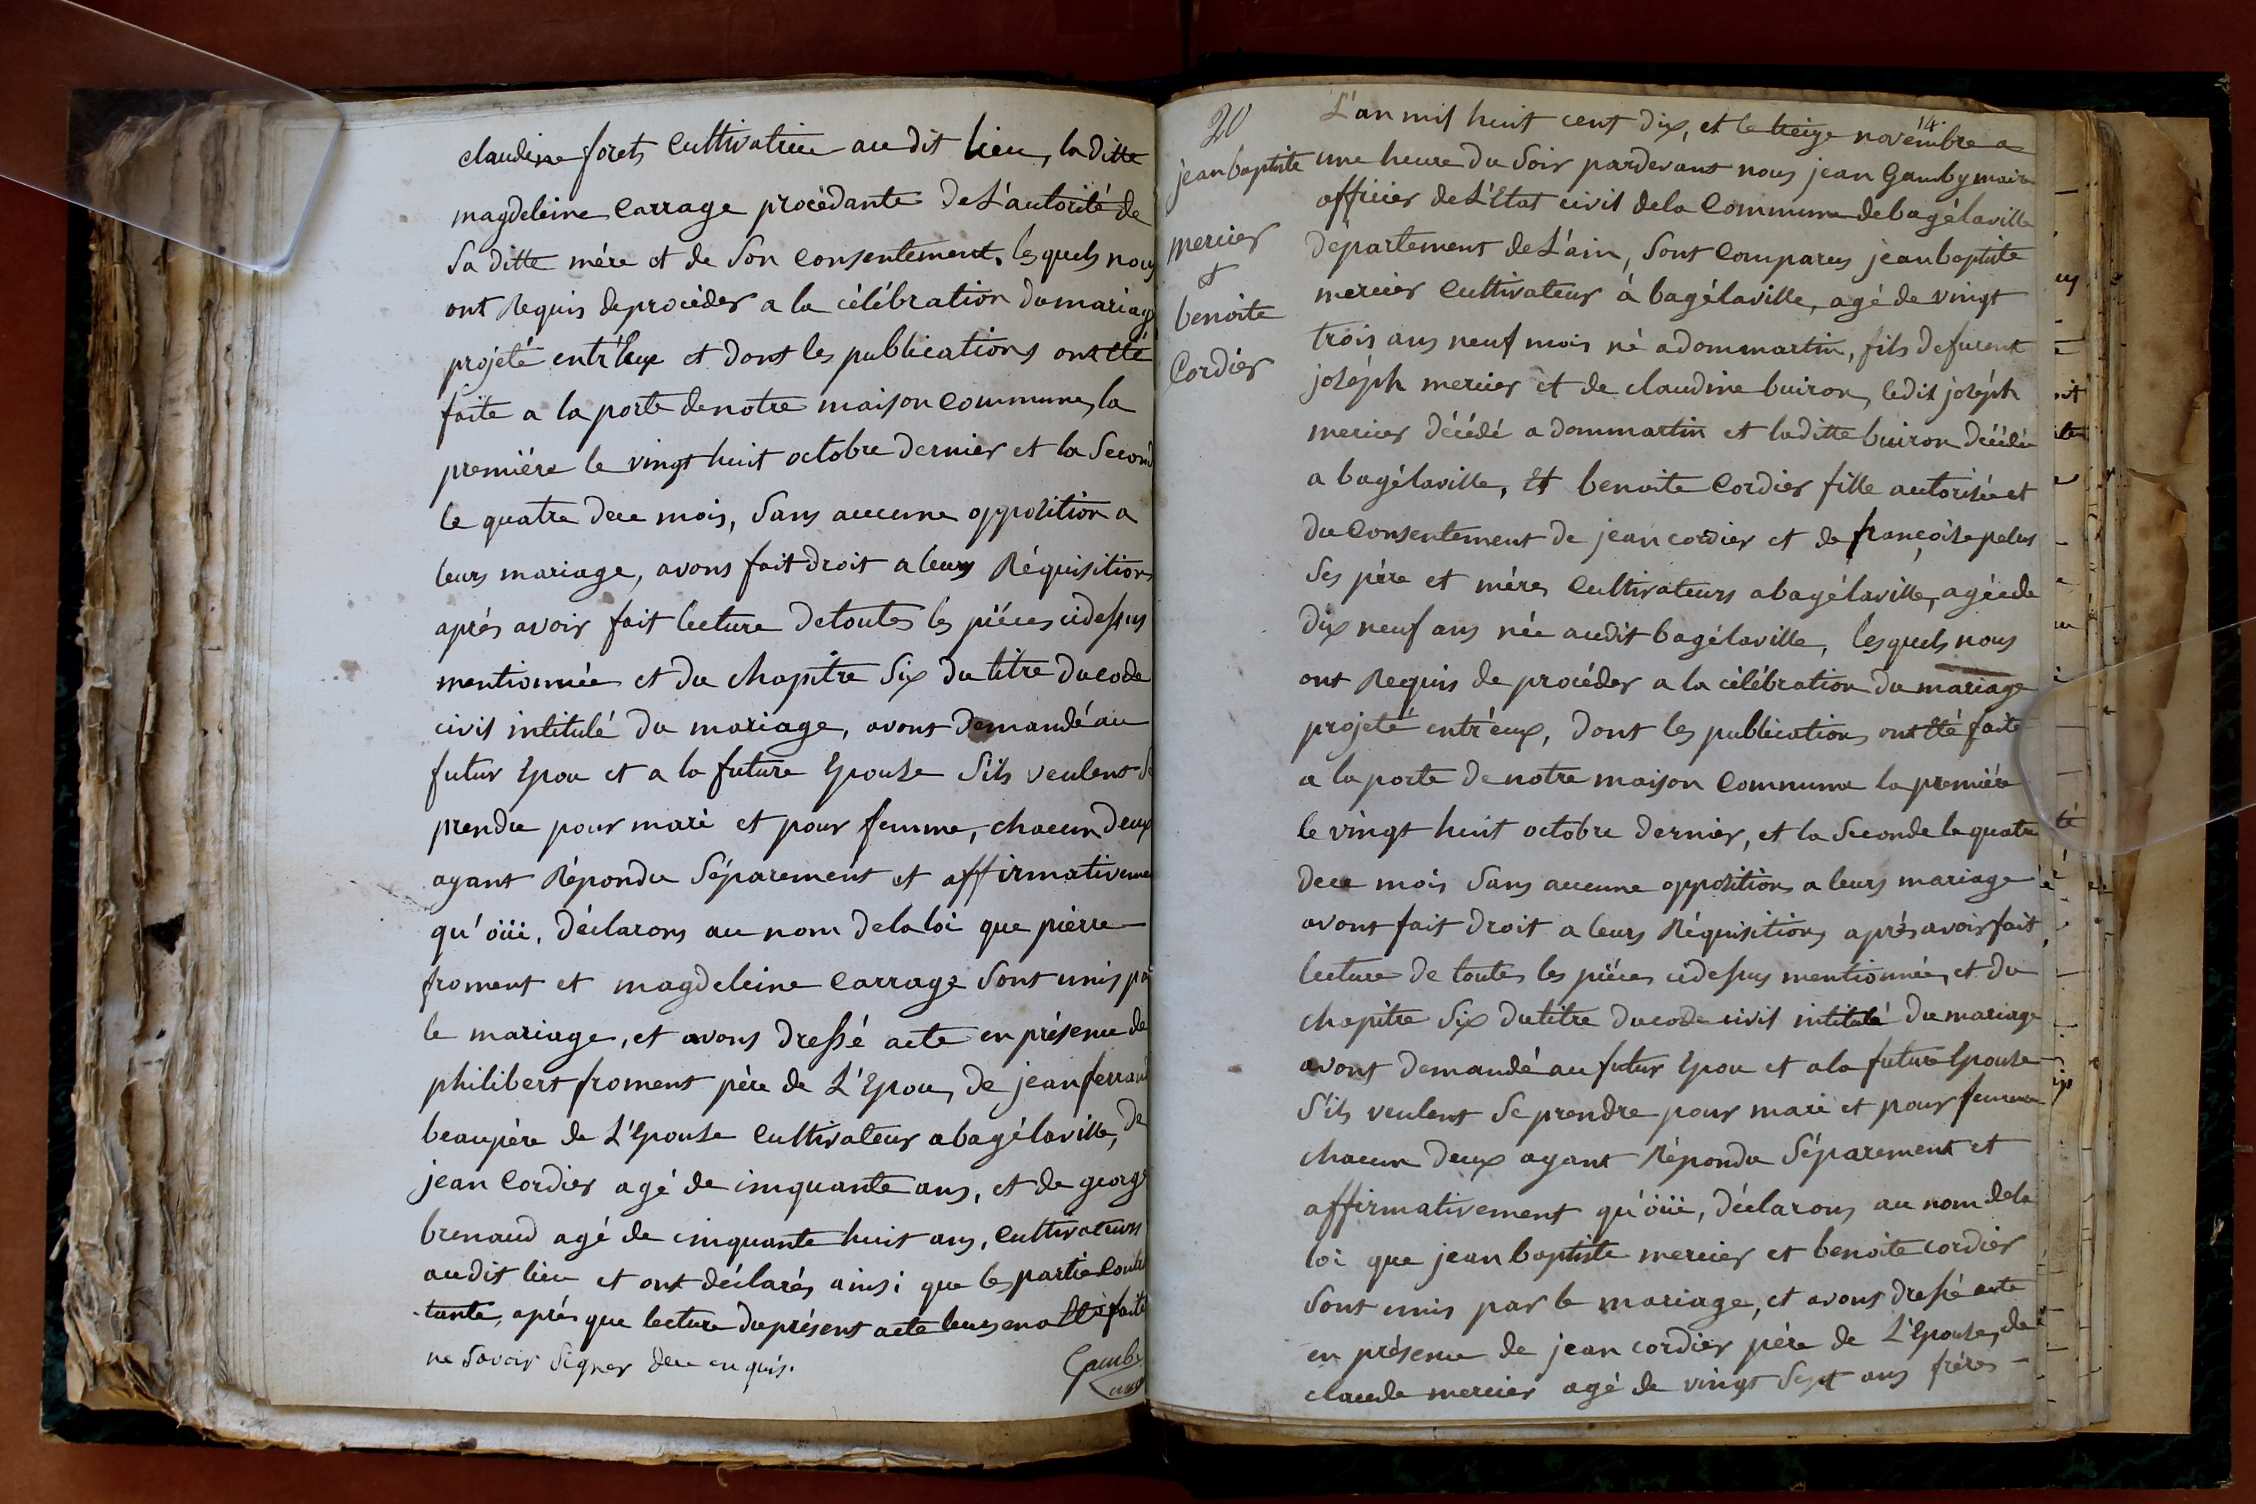 claudine forets Cultivatrice au dit lieu, la ditte
magdeleine Carrage procédante de L'autorité de
sa ditte mére et de son Consentement, lesquels nous
ont Requis de procéder a la célébration du mariage
projeté entr'Eux et dont les publications ont Eté
faite a la porte de notre maison Commune, la
première le vingt huit octobre dernier et la Second
le quatre de ce mois, sans aucune opposition a
leurs mariage, avons fait droit a leurs Réquisitions
aprés avoir fait lecture de toutes les piéces cidessus
mentionnée et du chapitre Six du titre du code
civil intitulé du mariage, avons demandé au
futur Epou et a la future Epouse S'ils veulent Se
prendre pour mari et pour femme, chacun deux
ayant Répondu Séparement et affirmativeme
qu'öüi, déclarons au nom de la loi que pièrre
froment et magdeleine Carrage sont unis pa
le mariage, et avons dressé acte en présence de
philibert froment père de L'Epou, de jean ferrand
beaupère de L'Epouse Cultivateur a bagélaville, de
jean Cordier agé de cinquante ans, et de george
brenaud agé de cinquante huit ans, Cultivateurs
audit lieu et ont déclarés ainsi que les partie Contra
-tante, aprés que lecture du présent acte leurs en a Eté faite
ne Savoir Signer de ce enquis.
Gamby
20
14.
jean baptiste
mercier
&
benoite
Cordier
L'an mil huit cent dix, et le treize novémbre a
une heure du Soir pardevant nous jean Gamby maire
officier de L'Etat civil dela Commune de bagélaville
département de L'ain, Sont Comparus jean baptiste
mercier Cultivateur à bagélaville, agé de vingt
trois ans neuf mois né a dommartin, fils defurent
joséph mercier et de claudine buiron, ledit joséph
mercier décédé a dommartin et laditte buiron décédée
a bagélaville, Et benoite Cordier fille autorisée et
du Consentement de jean cordier et de françoise pelus
Ses père et mére, Cultivateurs a bagélaville, agée de
dix neuf ans née audit bagélaville, lesquels nous
ont Requis de procéder a la célébration du mariage
projeté entr'eux, dont les publications ont Eté faite
a la porte de notre maison Commune la première
le vingt huit octobre dernier, et la Seconde le quatre
de ce mois Sans aucune opposition a leurs mariage
avons fait droit a leurs Réquisitions aprés avoir fait
lecture de toutes les piéces cidessus mentionnée, et du
chapitre Six du titre du code civil intitulé du mariage
avons demandé au futur Epou et a la future Epouse
S'ils veulent Se prendre pour mari et pour femme
chacun deux ayant Répondu Séparement et
affirmativement qu'öüi, déclarons au nom dela
loi que jean baptiste mercier et benoite cordier
Sont unis par le mariage, et avons dressé acte
en présence de jean cordier père de L'Epouse, de
claude mercier agé de vingt Sept ans fréres